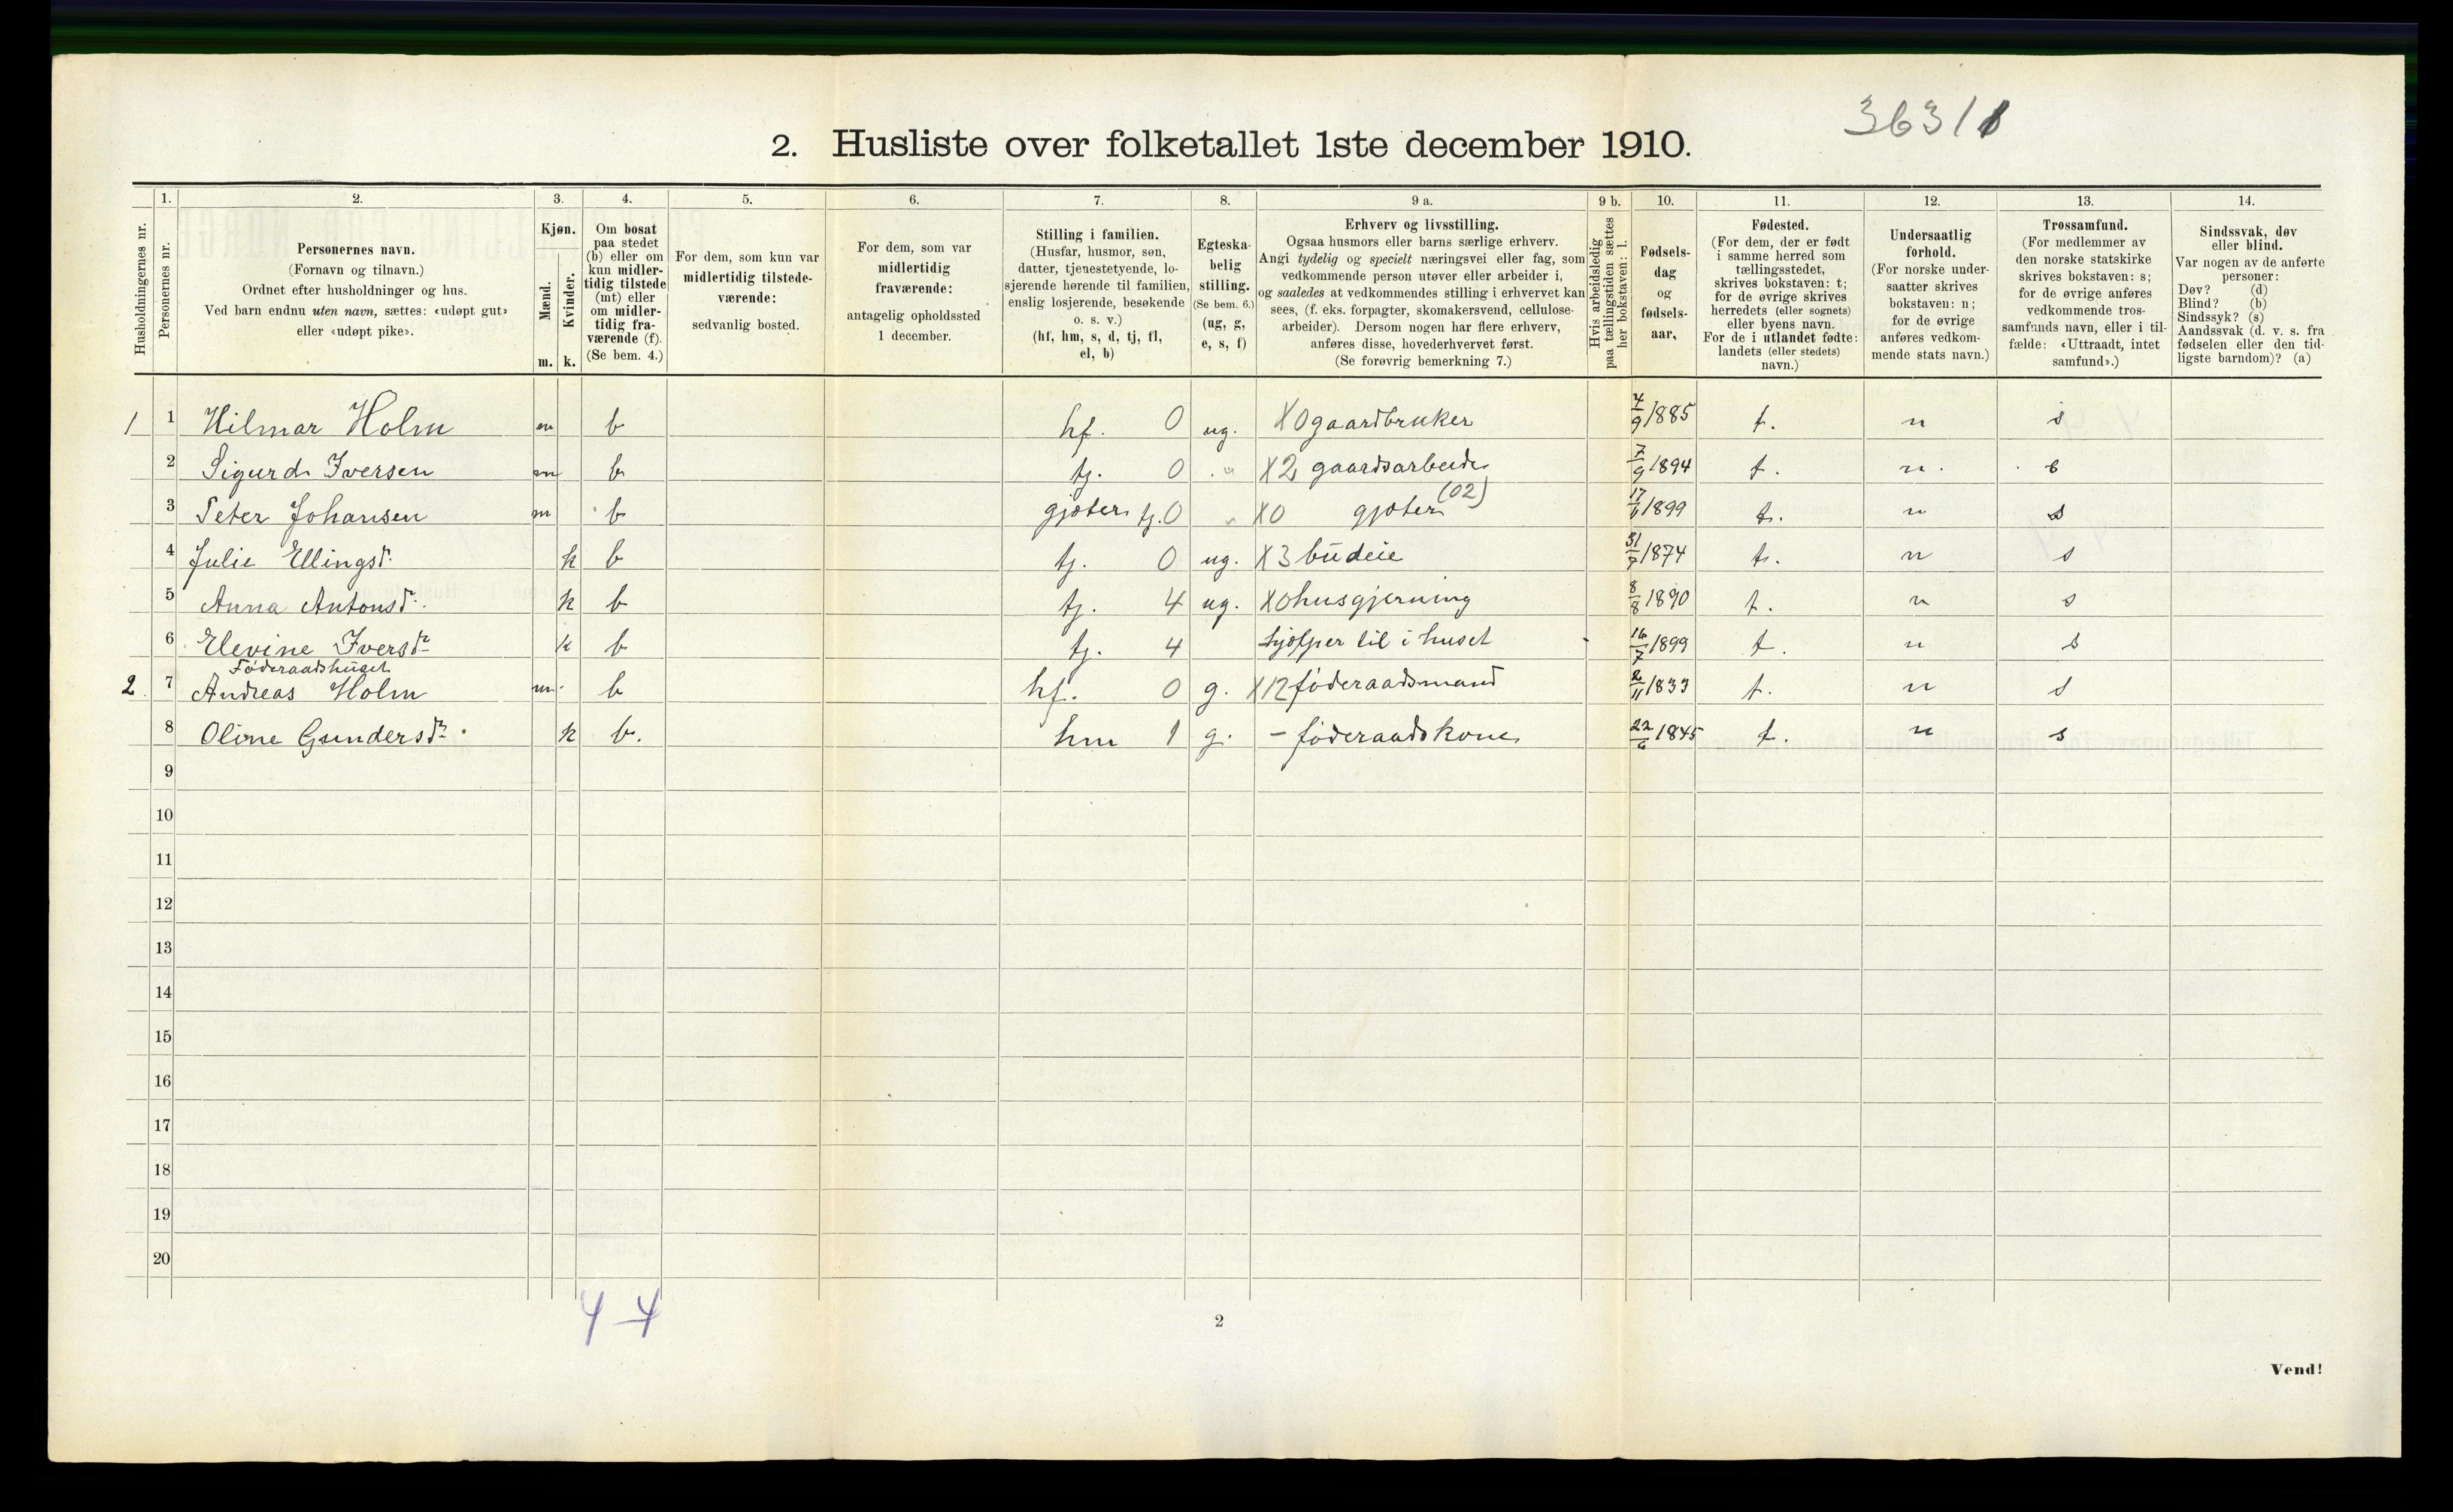 36311
2. Husliste over folketallet 1ste december 1910.
1. 2. 3. 4. 5. 6. 7. 8. 9 a. 9 b. 10. 11. 12. 13. 14.
Husholdningernes nr.
Personernes nr.
Personernes navn.
(Fornavn og tilnavn.)
Ordnet efter husholdninger og hus.
Ved barn endnu uten navn, sættes: «udøpt gut»
eller «udøpt pike».
Kjøn.
Mænd.
Kvinder.
m. k.
Om bosat
paa stedet
(b) eller om
kun midler-
tidig tilstede
(mt) eller
om midler-
tidig fra-
værende (f).
(Se bem. 4.)
For dem, som kun var
midlertidig tilstede-
værende:
sedvanlig bosted.
For dem, som var
midlertidig
fraværende:
antagelig opholdssted
1 december.
Stilling i familien.
(Husfar, husmor, søn,
datter, tjenestetyende, lo-
sjerende hørende til familien,
enslig losjerende, besøkende
o. s. v.)
(hf, hm, s, d, tj, fl,
el, b)
Egteska-
belig
stilling.
(Se bem. 6.)
(ug, g,
e, s, f)
Erhverv og livsstilling.
Ogsaa husmors eller barns særlige erhverv.
Angi tydelig og specielt næringsvei eller fag, som
vedkommende person utøver eller arbeider i,
og saaledes at vedkommendes stilling i erhvervet kan
sees, (f. eks. forpagter, skomakersvend, cellulose-
arbeider). Dersom nogen har flere erhverv,
anføres disse, hovederhvervet først.
(Se forøvrig bemerkning 7.)
Hvis arbeidsledig
paa tællingstiden sættes
her bokstaven: l.
Fødsels-
dag
og
fødsels-
aar.
Fødested.
(For dem, der er født
i samme herred som
tællingsstedet,
skrives bokstaven: t;
for de øvrige skrives
herredets (eller sognets)
eller byens navn.
For de i utlandet fødte:
landets (eller stedets)
navn.)
Undersaatlig
forhold.
(For norske under-
saatter skrives
bokstaven: n;
for de øvrige
anføres vedkom-
mende stats navn.)
Trossamfund.
(For medlemmer av
den norske statskirke
skrives bokstaven: s;
for de øvrige anføres
vedkommende tros-
samfunds navn, eller i til-
fælde: «Uttraadt, intet
samfund».)
Sindssvak, døv
eller blind.
Var nogen av de anførte
personer:
Døv? (d)
Blind? (b)
Sindssyk? (s)
Aandssvak (d. v. s. fra
fødselen eller den tid-
ligste barndom)? (a)
1 1 Hilmar Holm m b hf. 0 ug. X0 gaardbruker 4/9 1885 t. n s
2 Sigurd Iversen m b tj. 0 " X2 gaardsarbeider 7/9 1894 t. n. s
3 Peter Johansen m b gjæter tj. 0 " X0 gjæter (02) 17/6 1899 t. n s
4 Julie Ellingsd. k b tj. 0 ug. X3 budeie 31/7 1874 t. n s
5 Anna Antonsd. k b tj. 4 ug. X0 husgjerning 8/8 1890 t. n s
6 Elevine Iversd. k b tj. 4 hjælper til i huset 16/7 1899 t. n s
Føderaadshuset
2. 7 Andreas Holm m b hf. 0 g. X12 føderaadsmand 2/11 1833 t. n s
8 Oline Gundersd. k b. hm 1 g. - føderaadskone 22/6 1845 t. n s
9
10
11
12
13
14
15
16
17
18
19
20
4 4
2
Vend!